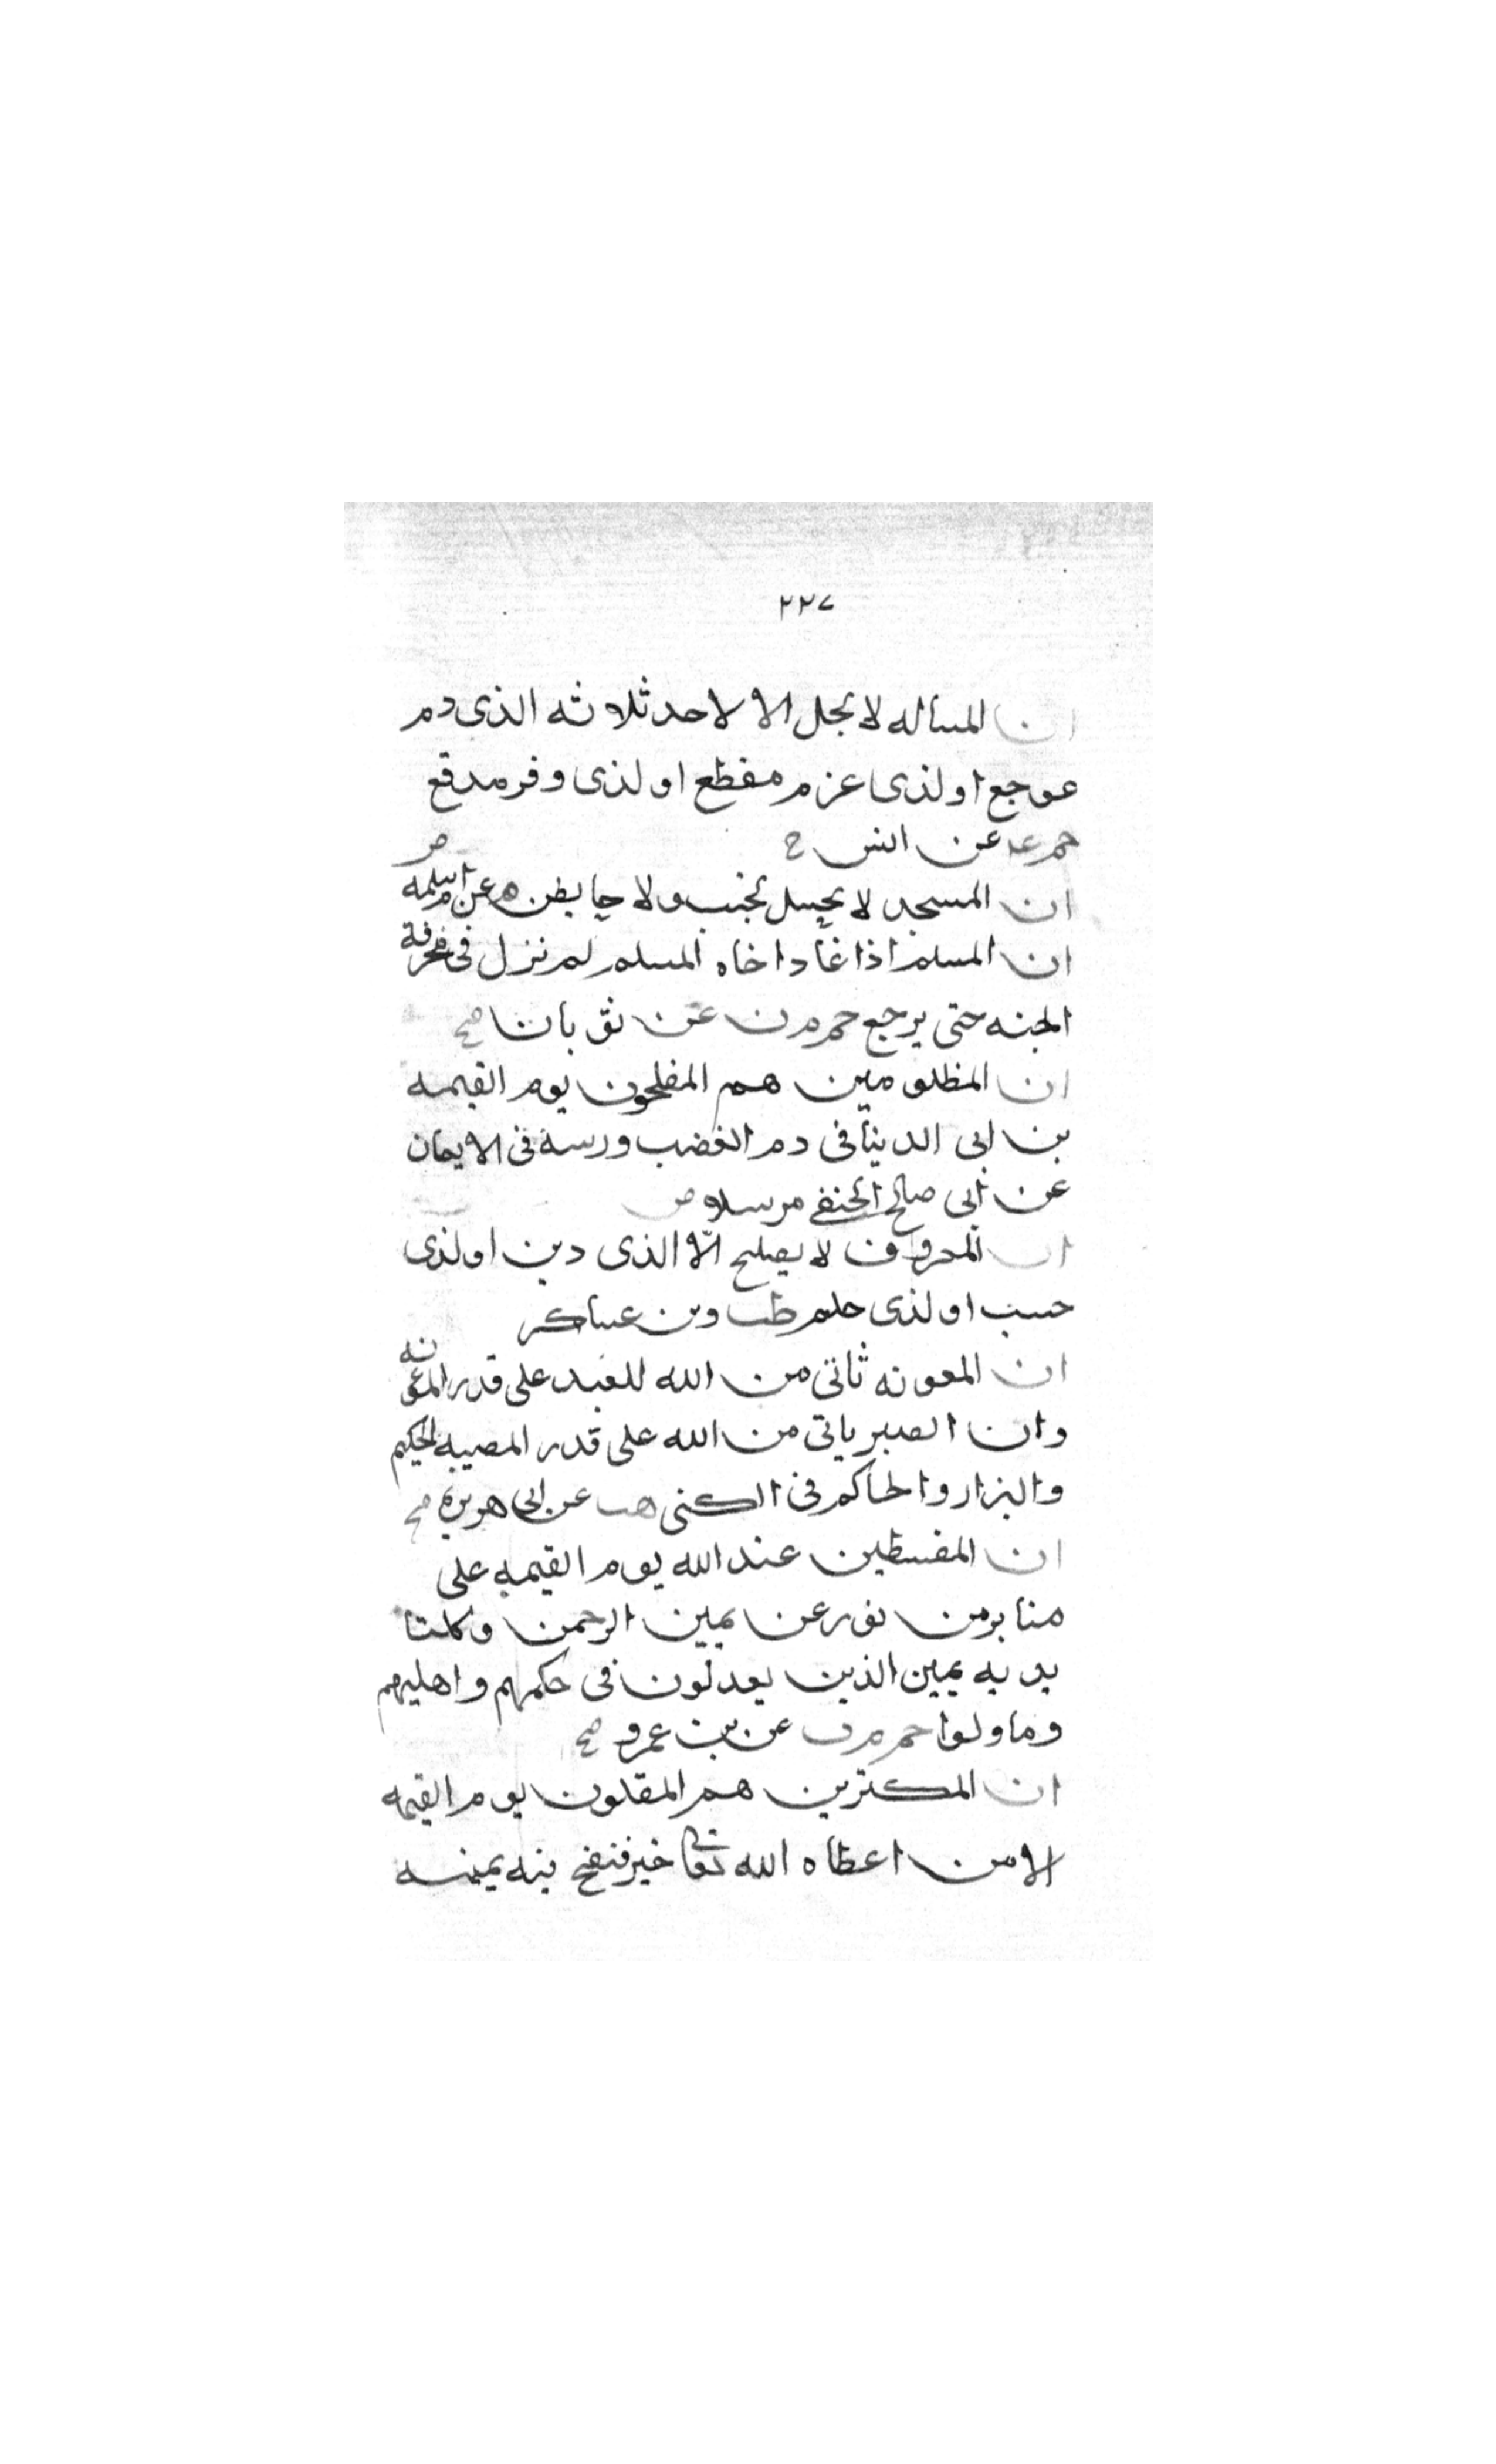 ٢٢٧
ان المساله لا تحل الا لاحد ثلاثه الذى دم
موجع او لذى عزم مفظع او لذى وفر مدقع
حم عد عن انس ح
ان المسجد لا يحل لجنب ولا حايض ه عن ام سلمه ض
ان المسلم اذا عاد اخاه المسلم لم نزل فى مخرفة
الجنه حتى يرجع حم م ن عن ثوبان صح
ان المظلومين هم المفلحون يوم القيمه
بن ابى الدنيا فى دم الغضب ورسة فى الايمان
عن ابى صالح الحنفى مرسلا ض
ان المعروف لا يصلح الّا الذى دين او لذى
حسب او لذى حلم طب وبن عساكر
ان المعونه ثاتى من الله للعبد على قدر المعونه
وان الصبر ياتى من الله على قدر المصيبه الحكيم
والبزار والحاكم فى الكنى هب عن ابى هريرة صح
ان المقسطين عند الله يوم القيمه على
منابر من نور عن يمين الرحمن وكلتا
يديه يمين الذين يعدلون فى حكمهم واهليهم
وما ولوا حم م ن عن بن عمرو صح
ان المكثرين هم المقلون يوم القيمه
الا من اعطاه الله تعالى خير فنفح فيه يمينه